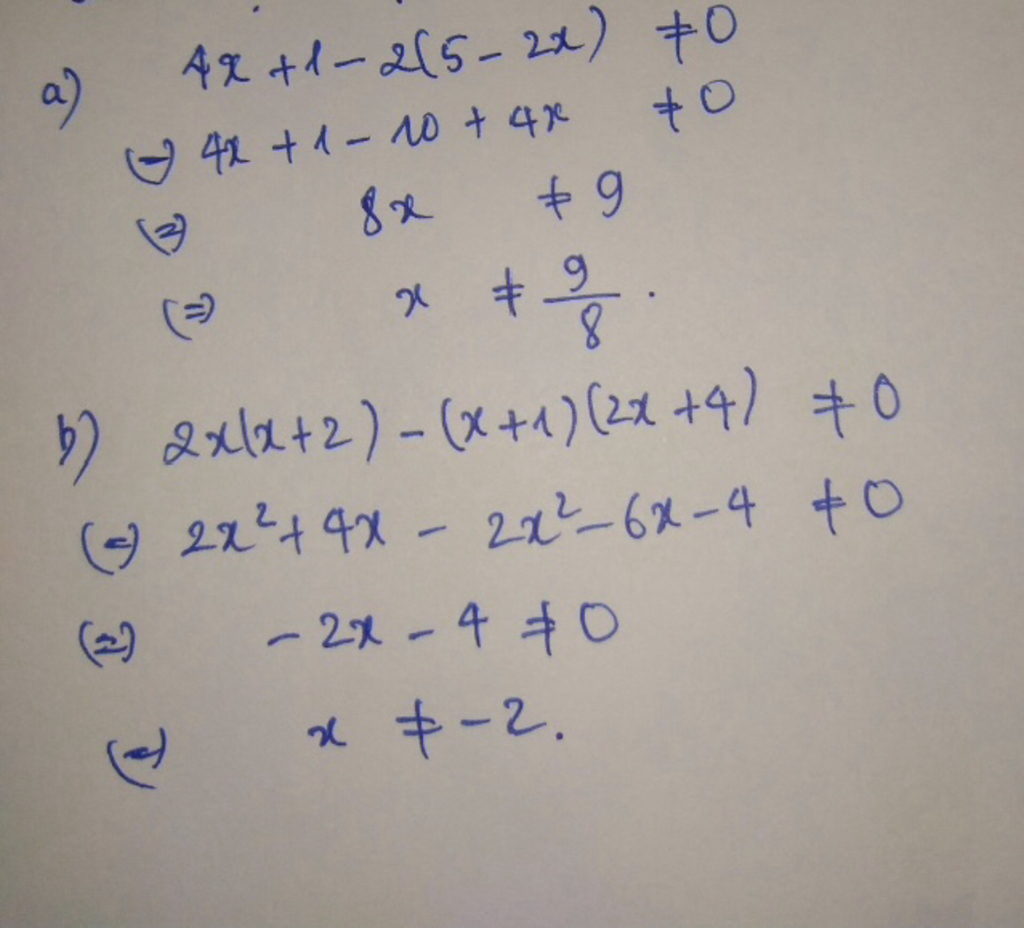 a) 4x + 1 - 2(5 - 2x) ≠ 0
(=) 4x + 1 - 10 + 4x ≠ 0
(=) 8x ≠ 9
(=) x ≠ 9/8 .
b) 2x(x+2) - (x+1)(2x+4) ≠ 0
(=) 2x² + 4x - 2x² - 6x - 4 ≠ 0
(=) - 2x - 4 ≠ 0
(=) x ≠ -2.